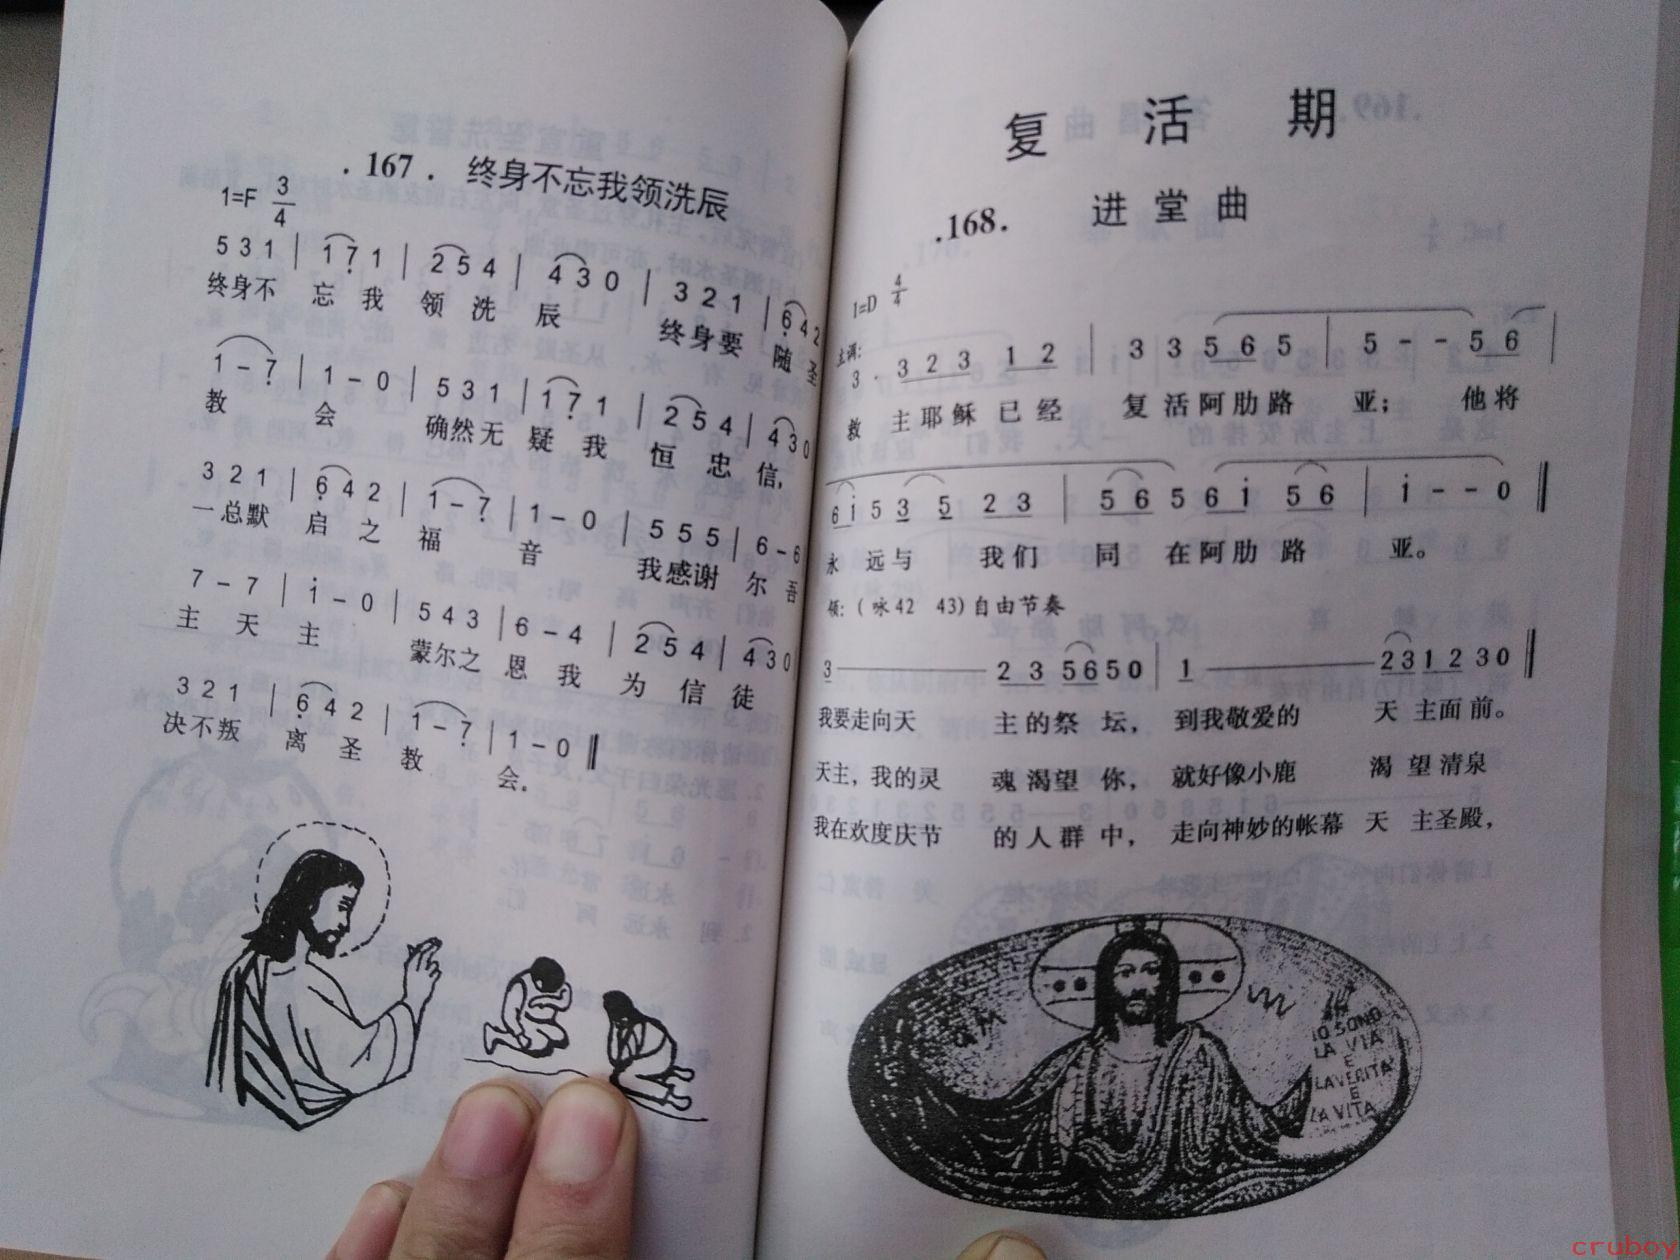 .167. 终身不忘我领洗辰
1=F 3/4
5 3 1 | 1 7 1 | 2 5 4 | 4 3 0 | 3 2 1 | 6 4 2
终身不 忘 我 领 洗 辰 终身要 随 圣
1 - 7 | 1 - 0 | 5 3 1 | 1 7 1 | 2 5 4 | 4 3 0
教 会 确然无 疑 我 恒 忠 信,
3 2 1 | 6 4 2 | 1 - 7 | 1 - 0 | 5 5 5 | 6 - 6
一总默 启 之 福 音 我感谢 尔 吾
7 - 7 | 1 - 0 | 5 4 3 | 6 - 4 | 2 5 4 | 4 3 0
主 天 主 蒙尔之 恩 我 为 信 徒
3 2 1 | 6 4 2 | 1 - 7 | 1 - 0 ‖
决不叛 离 圣 教 会.
复 活 期
.168. 进 堂 曲
1=D 4/4
主调:
3 . 3 2 3 1 2 | 3 3 5 6 5 | 5 - - 5 6 |
救 主耶稣 已经 复活阿肋路 亚; 他将
6 1 5 3 5 2 3 | 5 6 5 6 1 5 6 | 1 - - 0 ‖
永 远与 我们 同 在阿肋 路 亚。
领: (咏42 43)自由节奏
3 —— 2 3 5 6 5 0 | 1 —— 2 3 1 2 3 0 ‖
我要走向天 主的祭 坛, 到我敬爱的 天 主面前。
天主, 我的灵 魂渴望 你, 就好像小鹿 渴望清泉
我在欢度庆节 的人群中, 走向神妙的帐幕 天 主圣殿,
IO SONO
LA VIA
E
LA VERITA'
E
LA VITA
cruboy